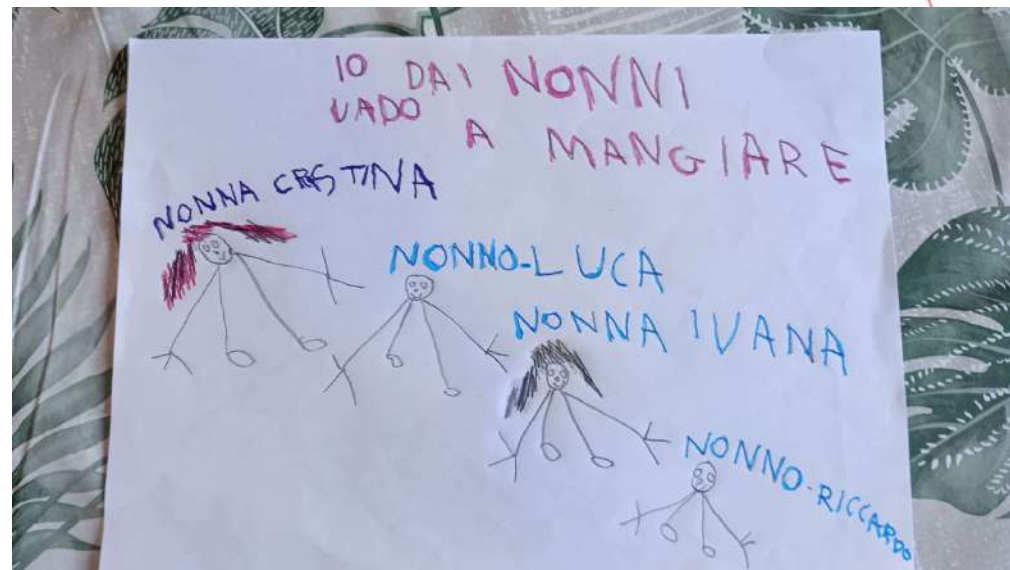 IO DAI NONNI
VADO A MANGIARE
NONNA CRISTINA
NONNO-LUCA
NONNA IVANA
NONNO-RICCARDO